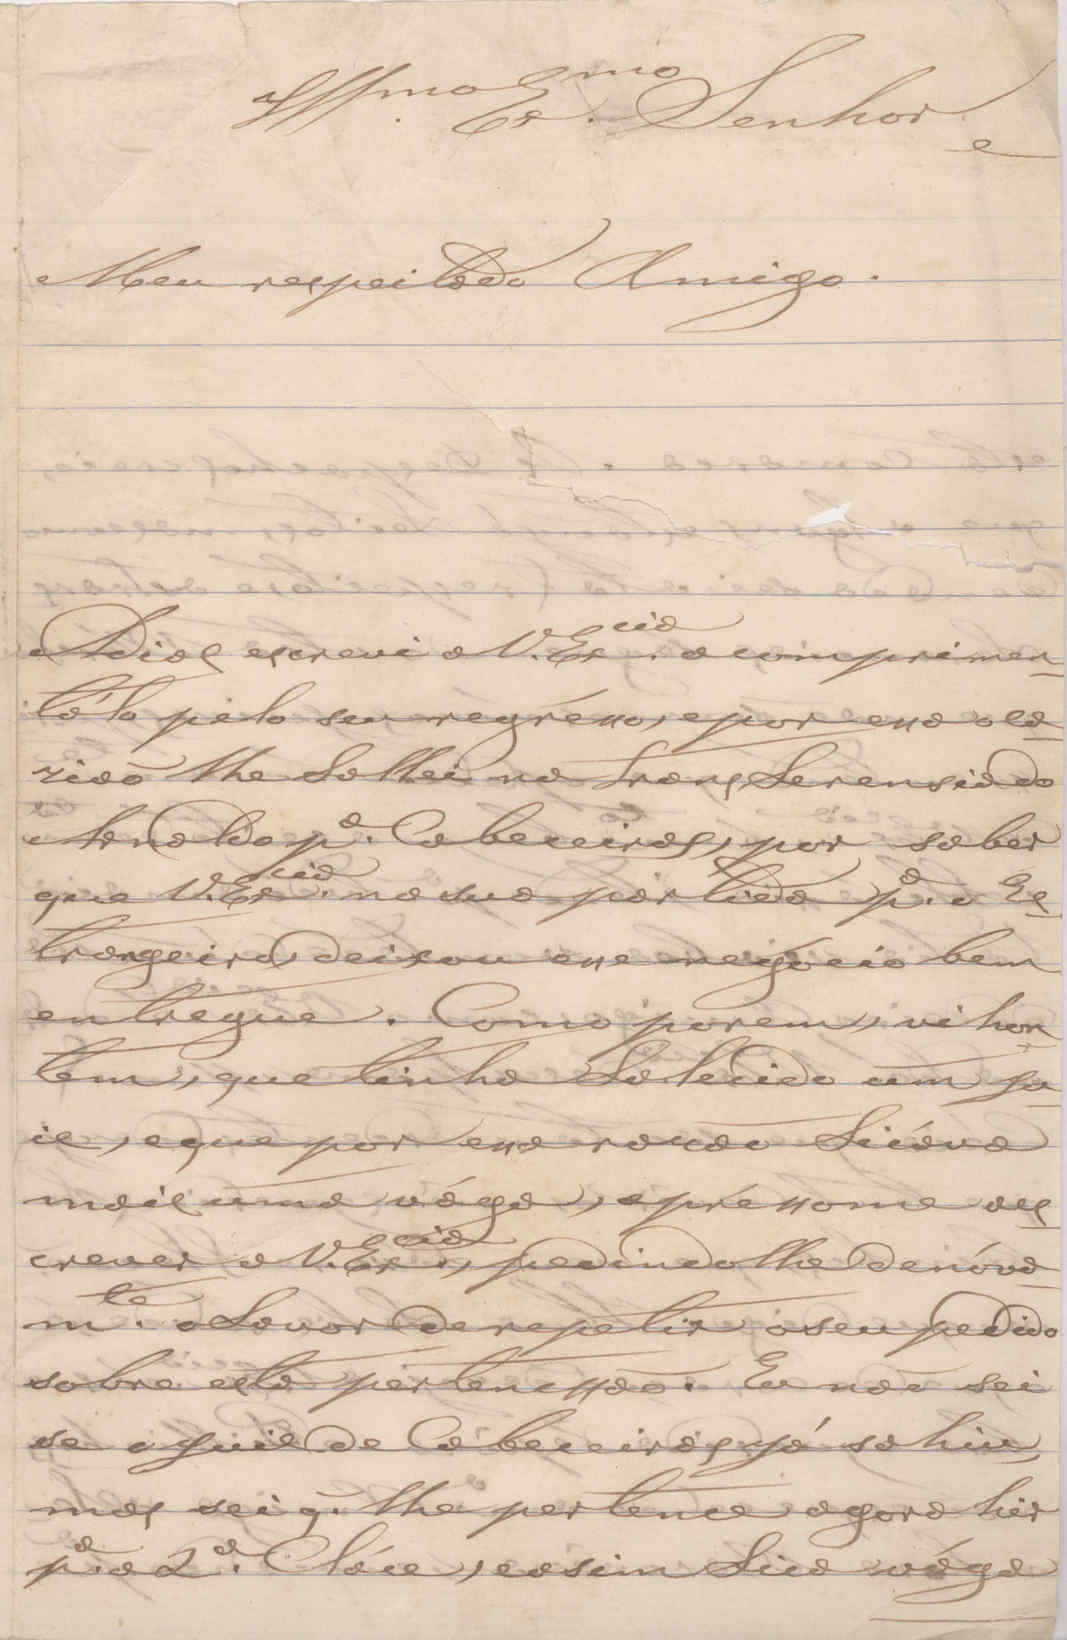 Illmo. Exmo. Senhor
Meu respeitado Amigo.
Ha Dias escrevi a V. Excia. a comprimen-
tál'o pelo seu regrésso, e por essa oca-
zião lhe fallei na transferensia do
Arnaldo pa. Cabeceiras, por saber
que V. Excia. na sua partida pa. o Es-
trangeiro, deixou esse negócio bem
entregue. Como porem, vi hon-
tem, que tinha falecido um Ju-
is, e que por essa razão ficáva
mais uma vága, aprésso-me a es-
crever a V. Excia., pedindo-lhe de nóva-
mte. o favor de repetir o seu pedido
sobre esta pertenssão. Eu não sei
se o Juis de Cabeceiras já sahiu,
mas sei q. lhe pertence agora hir
pa. a 2a. Cláce, e asim fica vága